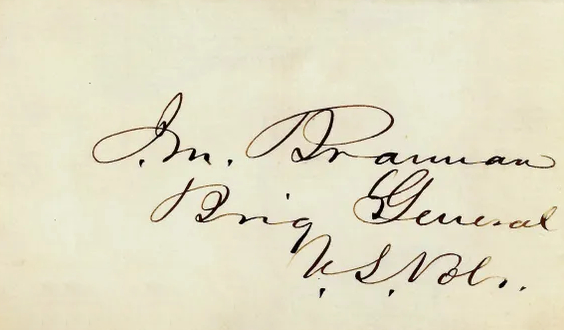 J.M. Brannan
Brig General
U.S. Vols.